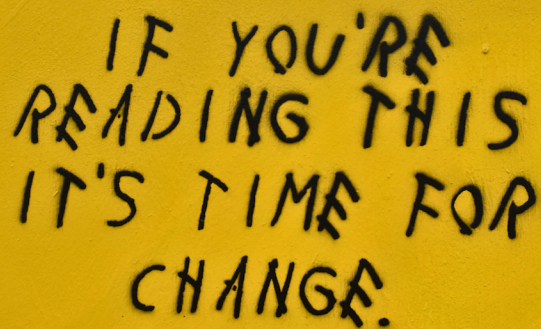 IF YOU'RE
READING THIS
IT'S TIME FOR
CHANGE.